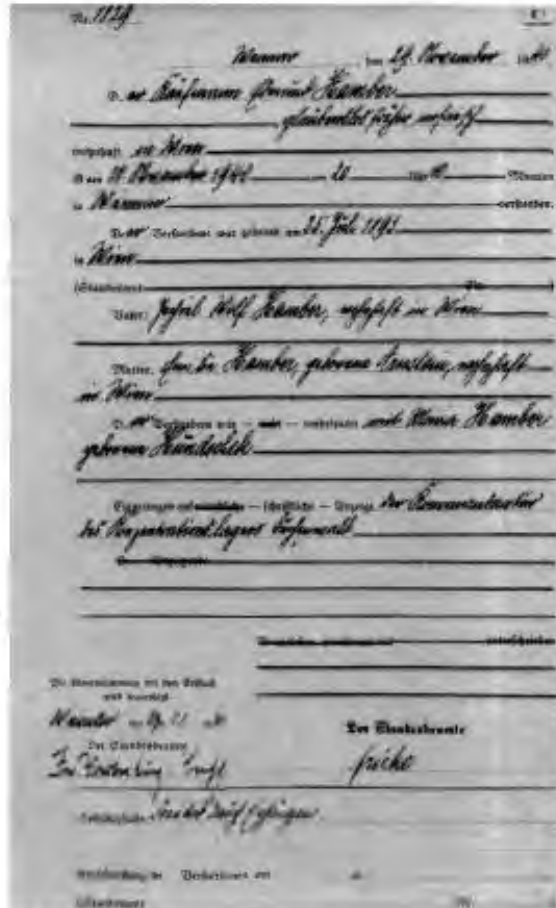 Nr. 1829
Weimar, den 29. November 1940
D er Kaufmann Edmund Hamber
glaubenslos früher mosaisch
wohnhaft in Wien
ist am November 1940 um Uhr Minuten
in Weimar verstorben.
D er Verstorbene war geboren am 25. Juli 1893
in Wien
(Standesamt Nr.
Vater: Wolf Hamber, wohnhaft in Wien
Mutter: Hamber, geborene Arnstein, wohnhaft
in Wien
D er Verstorbene war — nicht — verheiratet mit Maria Hamber
geborene
Eingetragen auf mündliche — schriftliche — Anzeige der Kommandantur
des Konzentrationslagers Buchenwald
D Anzeigende
unterschrieben
Die Übereinstimmung mit dem Erstbuch
wird beglaubigt
Weimar
Der Standesbeamte
Der Standesbeamte
In Vertretung
Fricke
Todesursache: durch Erhängen
Eheschließung de Verstorbenen am in
(Standesamt Nr.